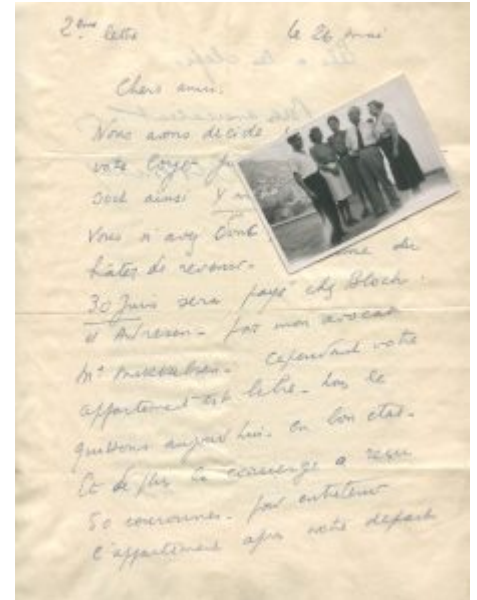 2ème lettre le 26 mai
Chers amis:
Nous avons décidé
votre loyer
soit ainsi
Vous n'avez donc
hâter de revenir.
30 Juin sera payé chez Bloch
et Andresen. par mon avocat
Mr Cependant votre
appartement est libre. nous le
quittons aujourd'hui. en bon état.
Et de plus la concierge a reçu
50 couronnes. pour entretenir
l'appartement après notre départ